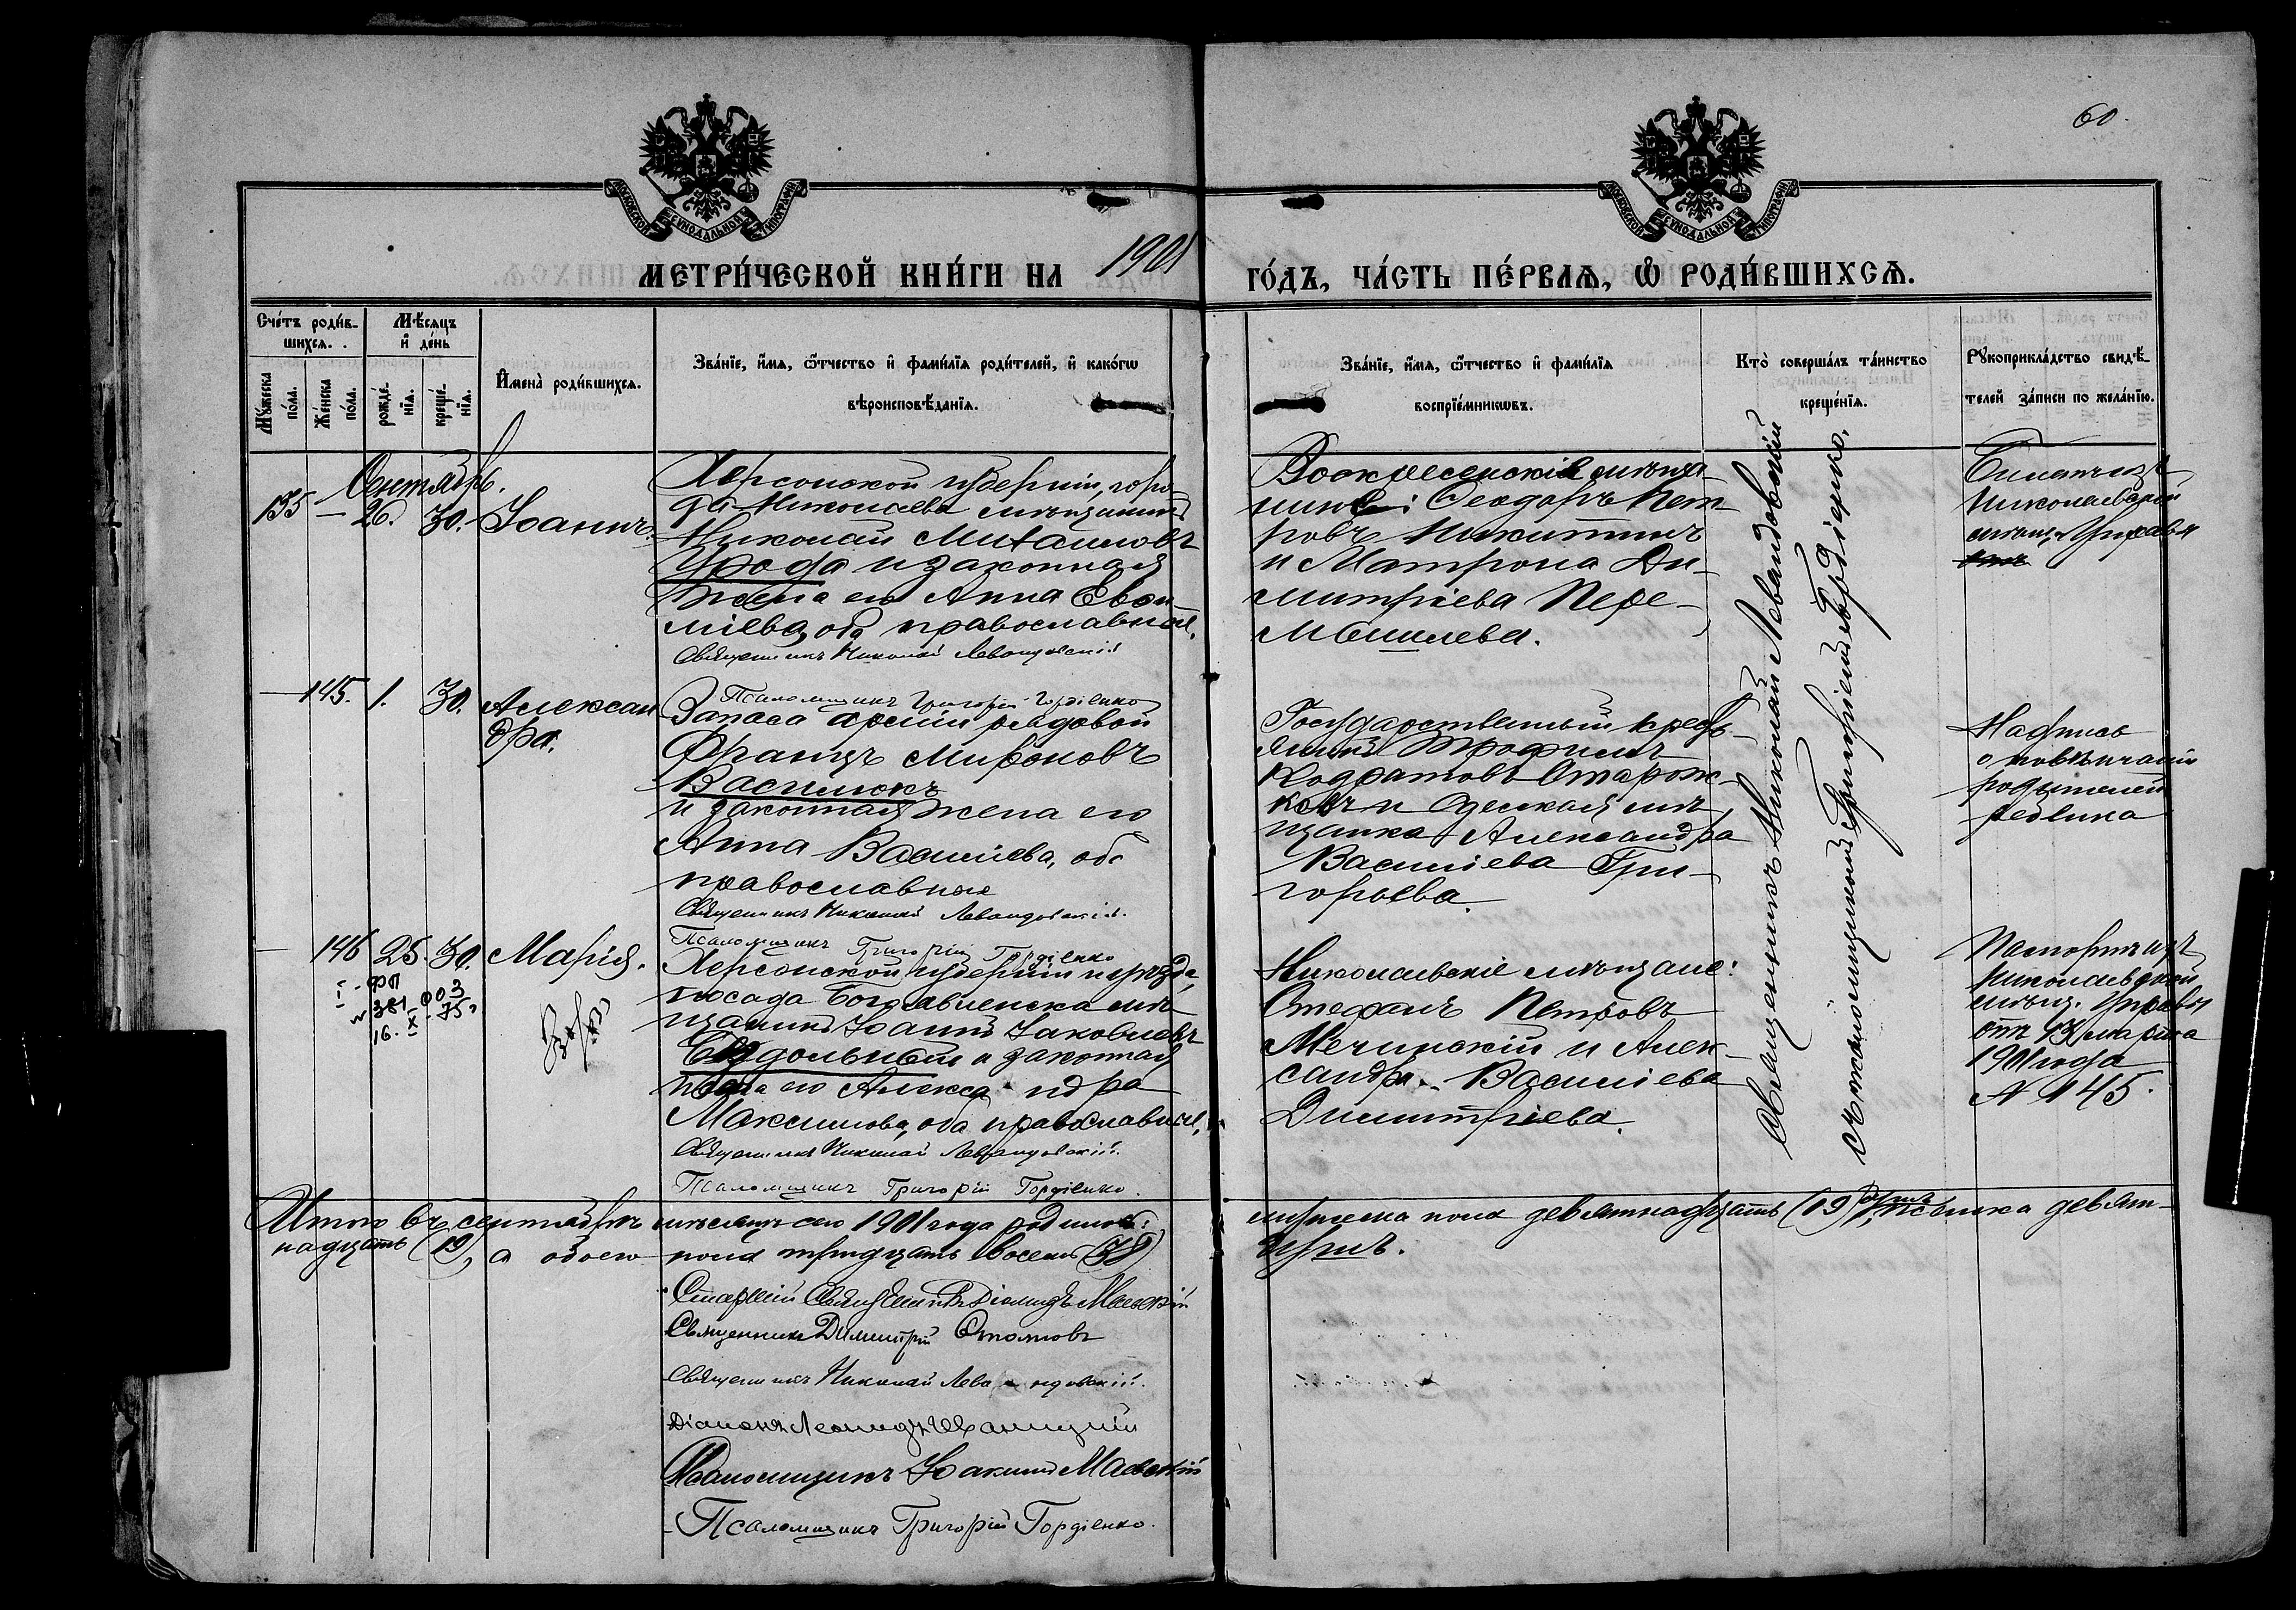 60
МОСКОВСКОЙ СУНОДАЛЬНОЙ ТИПОГРАФІИ
МОСКОВСКОЙ СУНОДАЛЬНОЙ ТИПОГРАФІИ
МЕТРИ́ЧЕСКОЙ КНИ́ГИ НА 1901 ГО́ДЪ, ЧА́СТЬ ПЕ́РВАѦ, Ѡ РОДИ́ВШИХСѦ.
Сче́тъ роди́в-
шихсѧ.
Мѣ́сѧцъ
и҆ де́нь
Мꙋ́жеска
по́ла.
Же́нска
по́ла.
рожде́-
нїѧ.
креще́-
нїѧ.
И҆мена̀ роди́вшихсѧ.
Зва́нїе, и҆́мѧ, ѻ҆́тчество и҆ фами́лїѧ роди́телей, и҆ како́гѡ
вѣроисповѣ́данїѧ.
Зва́нїе, и҆́мѧ, ѻ҆́тчество и҆ фами́лїѧ
воспрїе́мникѡвъ.
Кто̀ соверша́лъ та́инство
креще́нїѧ.
Рꙋкоприкла́дство свидѣ́-
телей за́писи по жела́нїю.
Сентябрь.
135 — 26. 30. Іоаннъ.
Херсонской губерніи, горо-
да Николаева мѣщанинъ
Николай Михаиловъ
Урода и законная
жена его Анна Евѳи-
міева, оба православные.
Священникъ Николай Левандовскій
Псаломщикъ Григорій Гордіенко
Воскресенскіе мѣща-
не: Ѳеодоръ Пет-
ровъ Никитинъ
и Матрона Ди-
митріева Пере-
Священникъ Николай Левандовскій
съ псаломщикомъ Григоріемъ Гордіенко.
Николаевской
мѣщ. Управы
— 145. 1. 30. Алексан
дра.
Запаса арміи рядовой
Францъ Мироновъ
Василюкъ
и законная жена его
Анна Василіева, оба
православные
Священникъ Николай Левандовскій.
Псаломщикъ Григорій Гордіенко
Государственный кресть-
янинъ Трофимъ
Кодратовъ Старож-
ковъ и Одесская мѣ-
щанка Александра
Василіева Гри-
горьева.
Надпись
о повѣнчаніи
родителей
ребенка
— 146 25. 30. Марія.
I - ФП
№ 381003
16. X - 75г
Херсонской губерніи и уѣзда,
посада Богоявленска мѣ-
щанинъ Іоаннъ Іаковлевъ
и законная
жена его Александра
Максимова, оба православные.
Священникъ Николай Левандовскій.
Псаломщикъ Григорій Гордіенко.
Николаевскіе мѣщане:
Стефанъ Петровъ
Мечинскій и Алек-
сандра Василіева
Димитріева.
Паспортъ изъ
Николаевской
мѣщ. Управы
отъ 13 марта
1901 года
№ 145.
Итого въ сентябрѣ мѣсяцѣ сего 1901 года родилось: мужеска пола девятнадцать (19) душъ, женска девят-
надцать (19), а обоего пола тридцать восемь (38) душъ.
Старшій Священникъ
Священникъ Димитрій
Священникъ Николай Левандовскій.
Діаконъ Леонидъ
Псаломщикъ Іоакимъ
Псаломщикъ Григорій Гордіенко.